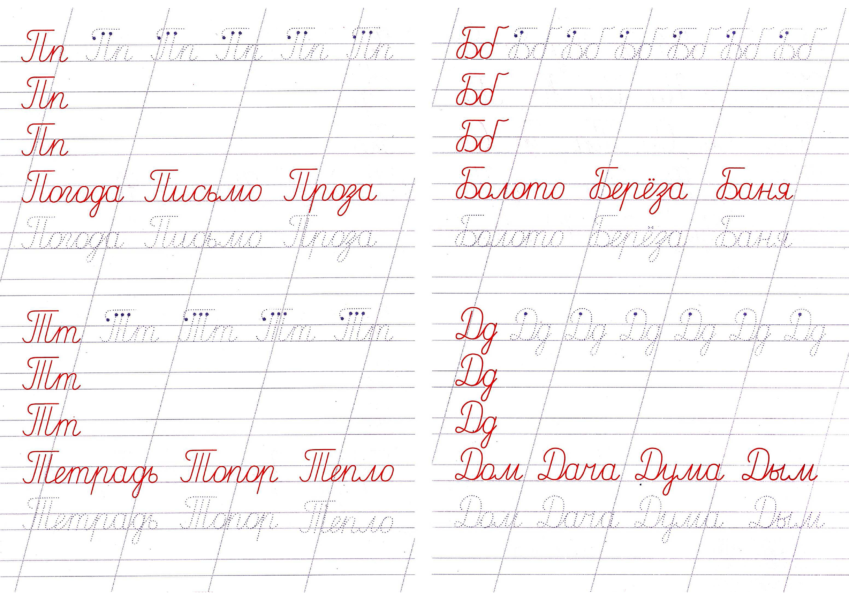 Пп Пп Пп Пп Пп Пп
Пп
Пп
Погода Письмо Проза
Погода Письмо Проза
Тт Тт Тт Тт Тт
Тт
Тт
Тетрадь Топор Тепло
Тетрадь Топор Тепло
Бб Бб Бб Бб Бб Бб Бб
Бб
Бб
Болото Берёза Баня
Болото Берёза Баня
Дд Дд Дд Дд Дд Дд Дд
Дд
Дд
Дом Дача Дума Дым
Дом Дача Дума Дым